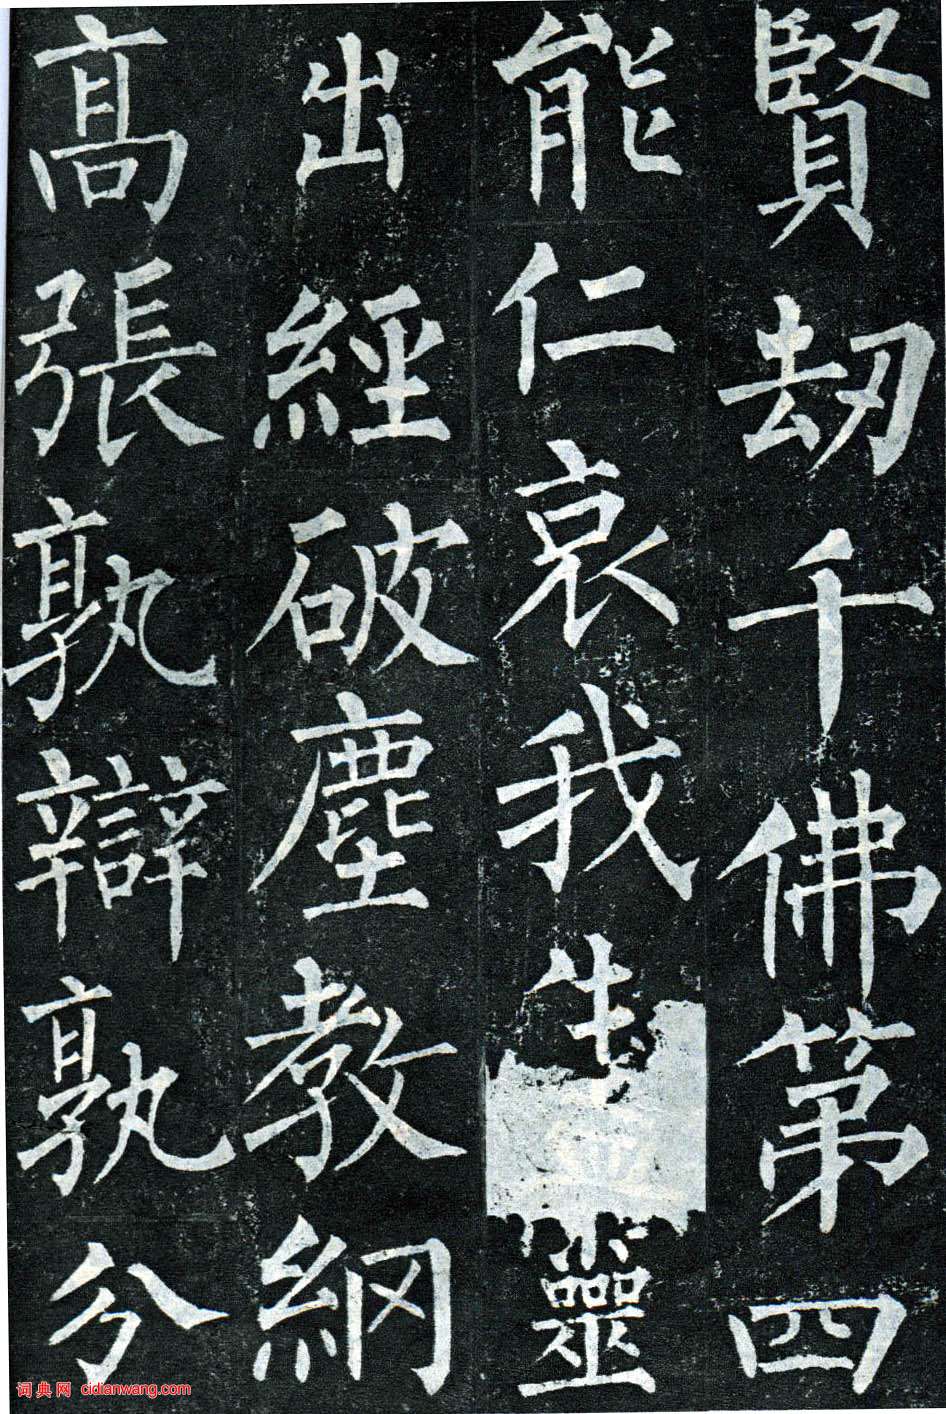 賢劫千佛第四
能仁哀我生靈
出經破塵教網
高張孰辯孰分
词典网 cidianwang.com